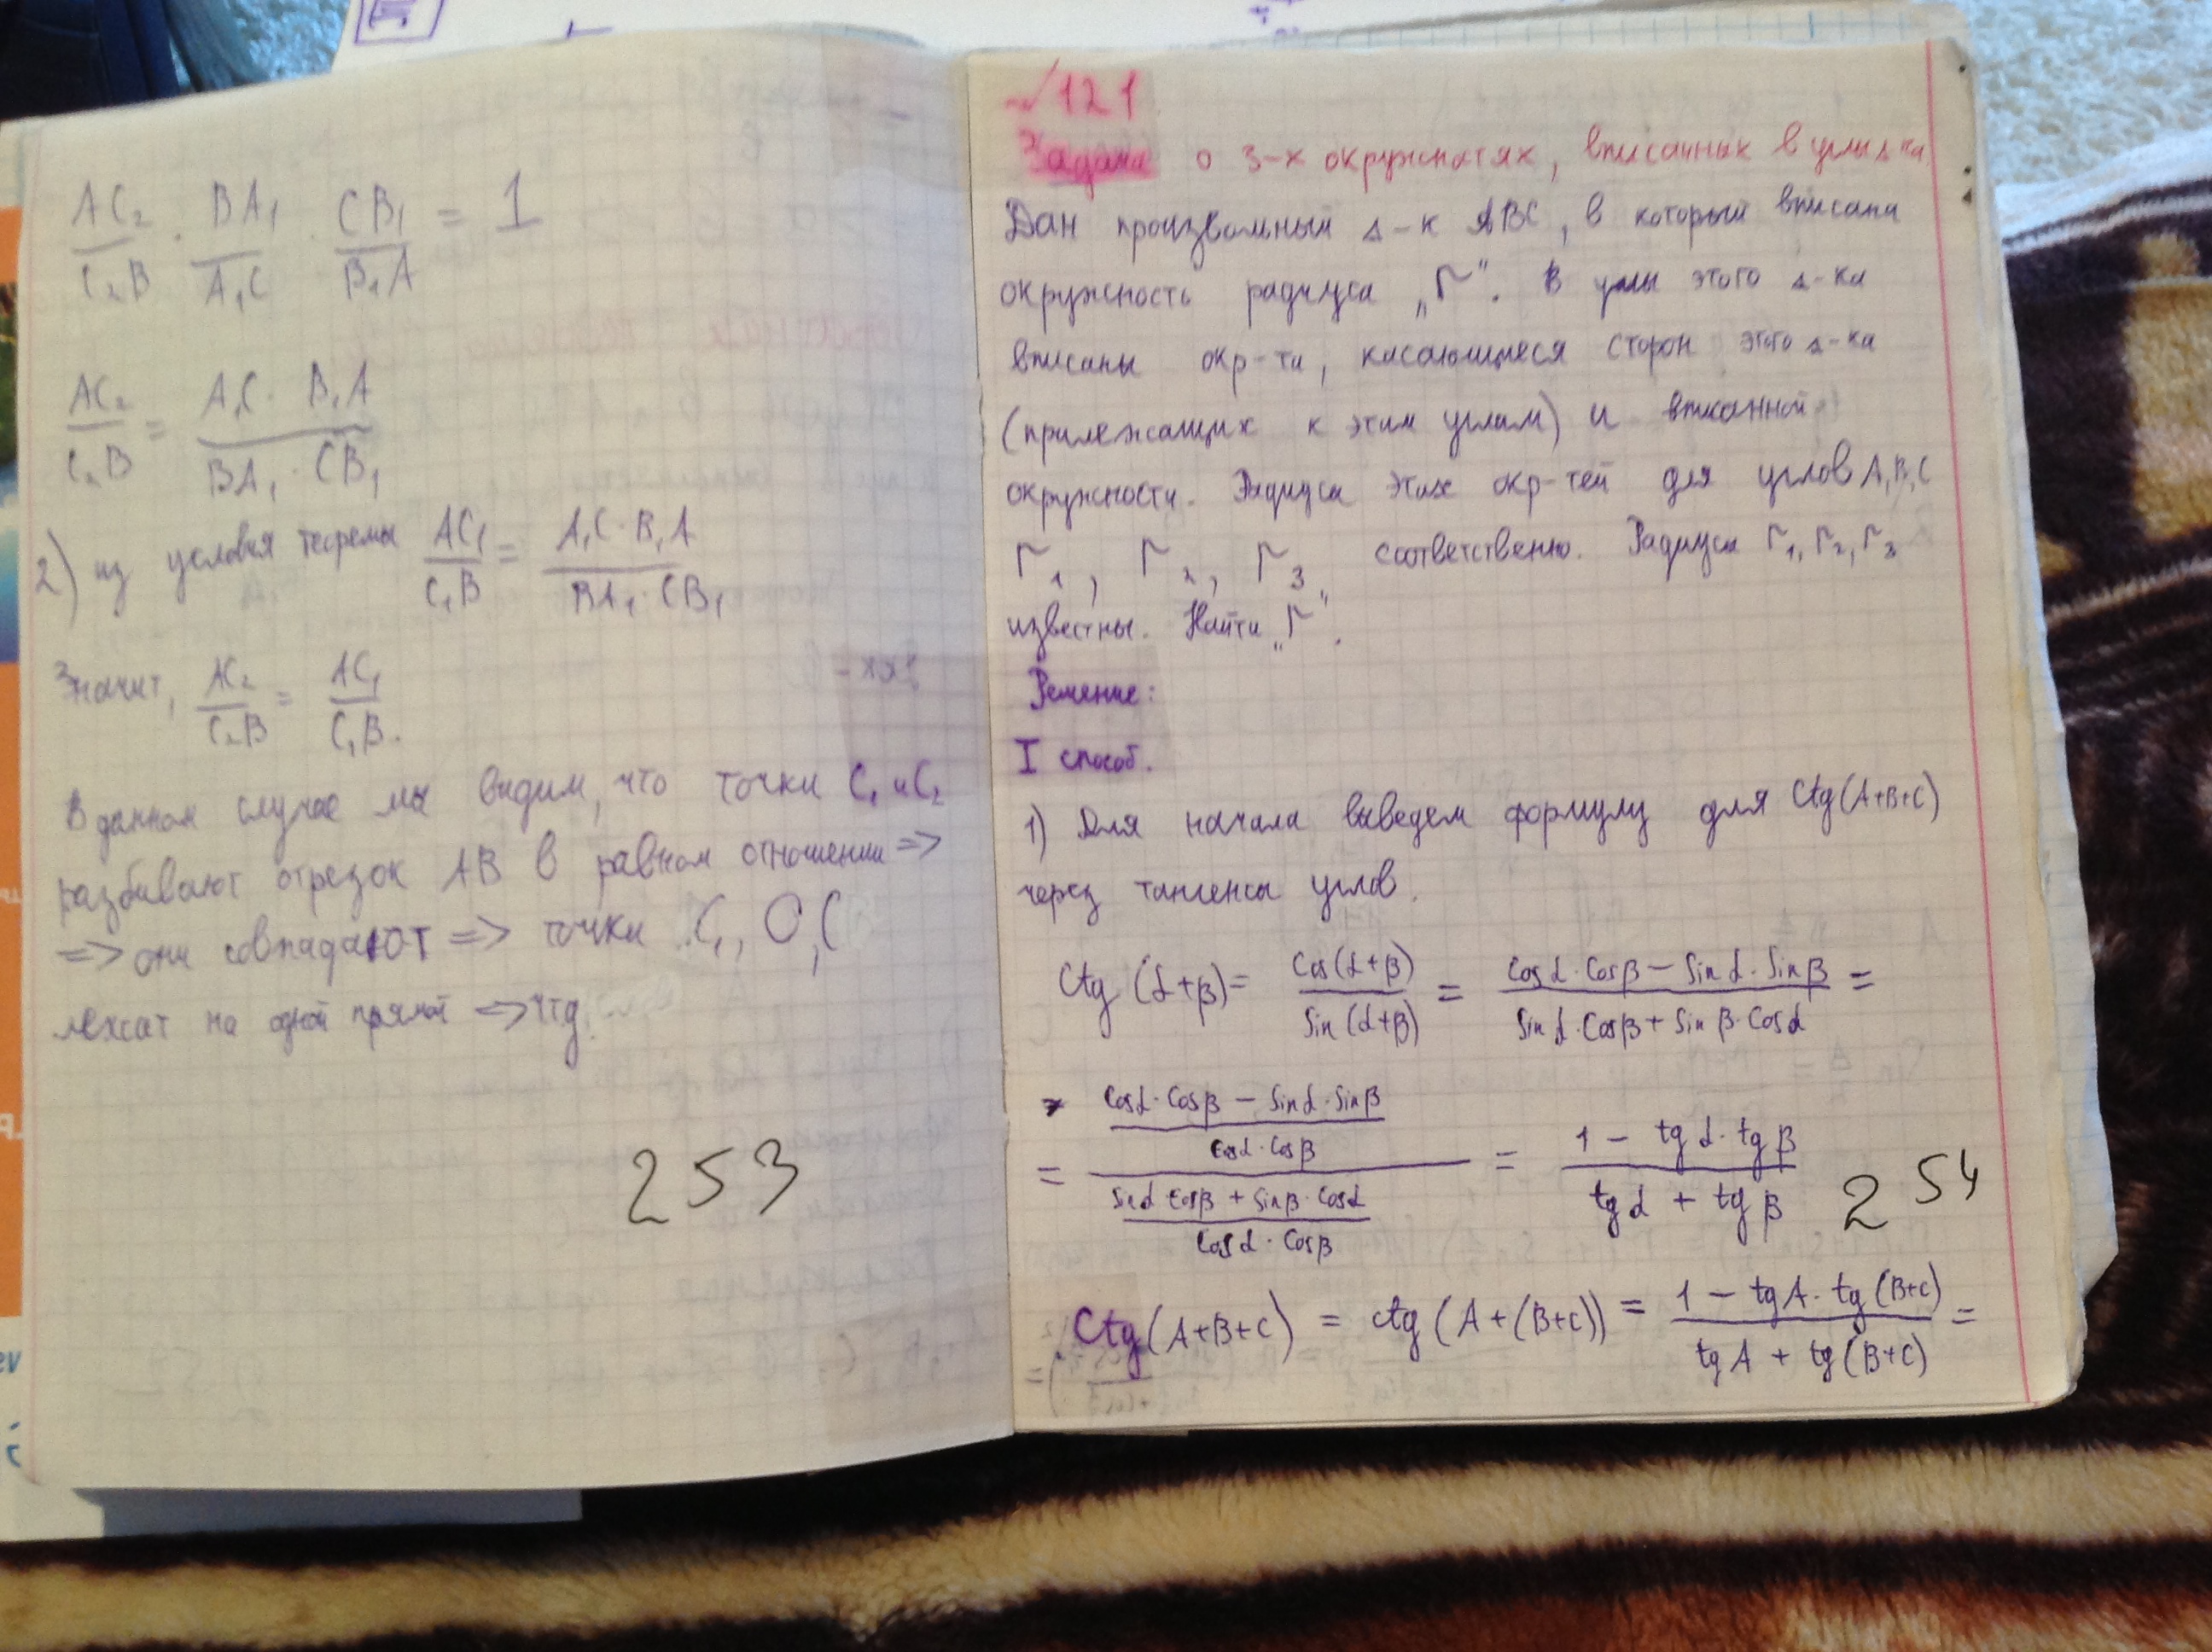 AC₂/C₂B · BA₁/A₁C · CB₁/B₁A = 1
AC₂/C₂B = A₁C · B₁A / BA₁ · CB₁
2) из условия теоремы AC₁/C₁B = A₁C · B₁A / BA₁ · CB₁
Значит, AC₂/C₂B = AC₁/C₁B.
В данном случае мы видим, что точки C₁ и C₂
разбивают отрезок AB в равном отношении =>
=> они совпадают => точки C₁, O, C
лежат на одной прямой => чтд.
253
№121
Задача о 3-х окружностях, вписанных в углы Δ-ка
Дан произвольный Δ-к ABC, в который вписана
окружность радиуса „r". В углы этого Δ-ка
вписаны окр-ти, касающиеся сторон этого Δ-ка
(прилежащих к этим углам) и вписанной
окружности. Радиусы этих окр-тей для углов A, B, C
r₁, r₂, r₃ соответственно. Радиусы r₁, r₂, r₃
известны. Найти „r".
Решение:
I способ.
1) Для начала выведем формулу для Ctg(A+B+C)
через тангенсы углов.
Ctg(α+β) = Cos(α+β)/Sin(α+β) = Cosα·Cosβ − Sinα·Sinβ / Sinα·Cosβ + Sinβ·Cosα =
= (Cosα·Cosβ − Sinα·Sinβ / Cosα·Cosβ) / (Sinα·Cosβ + Sinβ·Cosα / Cosα·Cosβ) = 1 − tgα·tgβ / tgα + tgβ
254
Ctg(A+B+C) = ctg(A+(B+C)) = 1 − tgA·tg(B+C) / tgA + tg(B+C) =